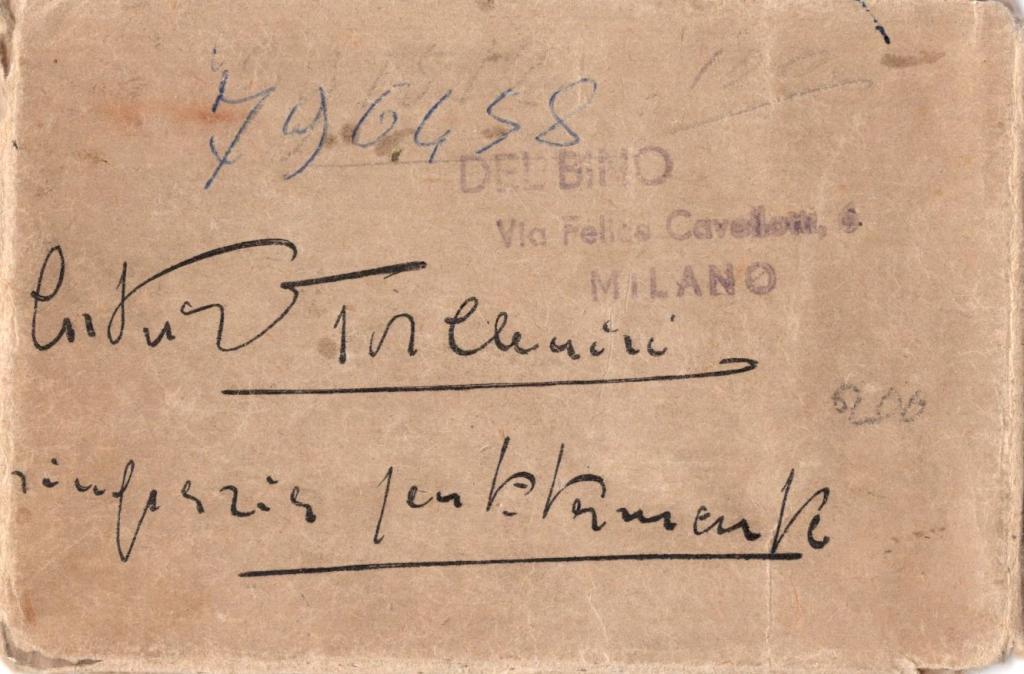 796458
DEL BINO
Via Felice Cavallotti,
MILANO
Arturo Toscanini
ringrazia sentitamente